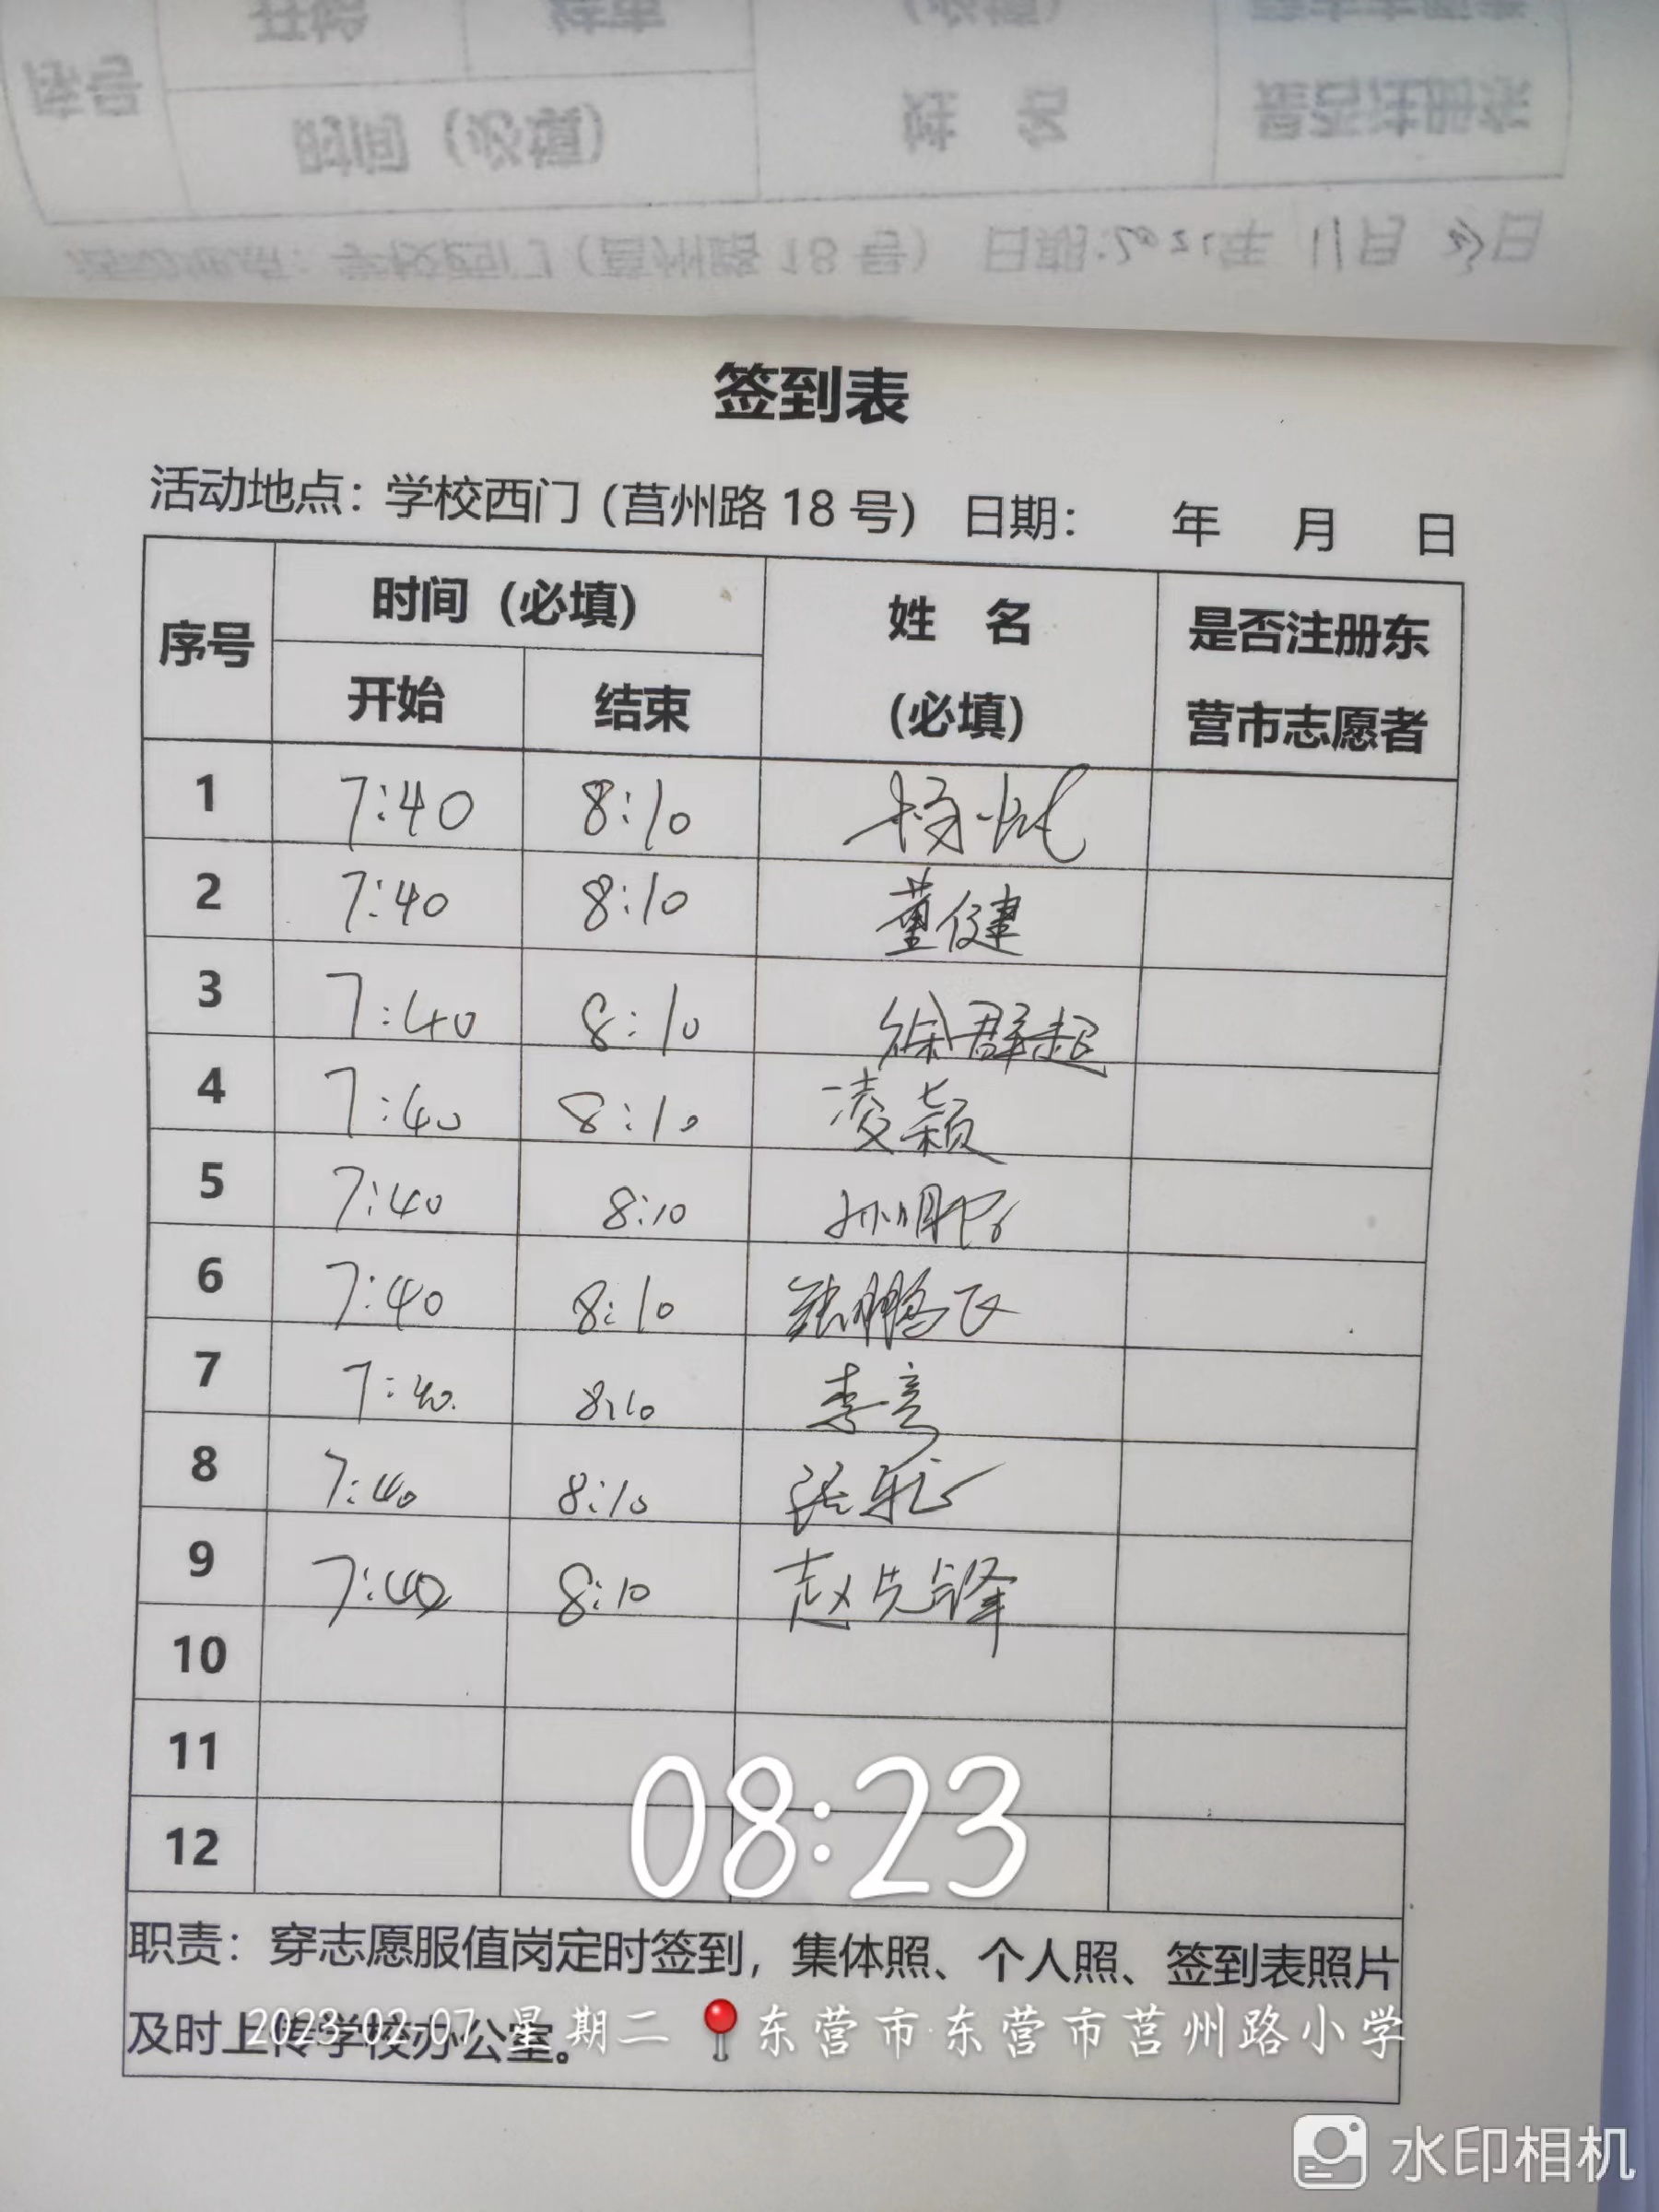 签到表
活动地点：学校西门（莒州路 18 号） 日期： 年 月 日
序号 时间（必填） 姓 名 （必填） 是否注册东营市志愿者
开始 结束
1 7:40 8:10 杨
2 7:40 8:10 董健
3 7:40 8:10 徐群超
4 7:40 8:10 凌颖
5 7:40 8:10 孙
6 7:40 8:10 张鹏飞
7 7:40 8:10 李亮
8 7:40 8:10 张
9 7:40 8:10 赵先锋
10
11
12
08:23
职责：穿志愿服值岗定时签到，集体照、个人照、签到表照片
及时上传学校办公室。
2023-02-07 星期二 东营市·东营市莒州路小学
水印相机